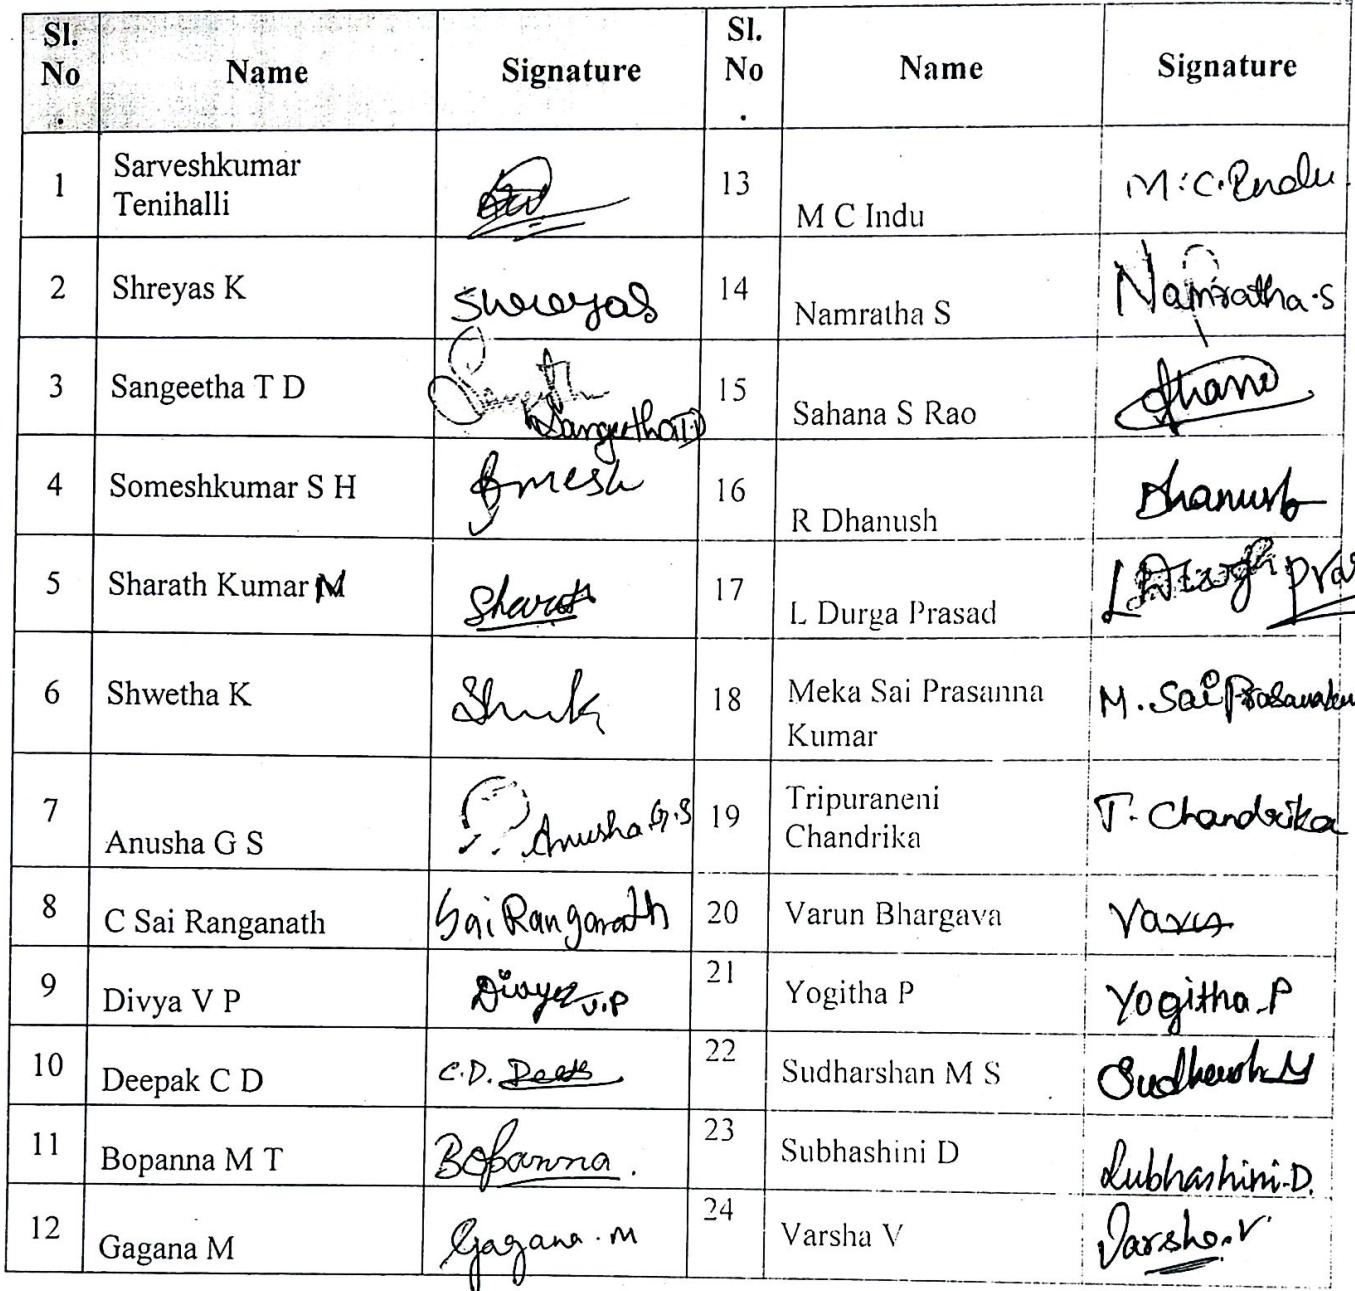 Sl. No . Name Signature Sl. No . Name Signature
1 Sarveshkumar Tenihalli 13 M C Indu M.C.Indu
2 Shreyas K Shreyas 14 Namratha S Namratha.S
3 Sangeetha T D Sangeetha T D 15 Sahana S Rao
4 Someshkumar S H Somesh 16 R Dhanush Dhanush
5 Sharath Kumar M Sharath 17 L Durga Prasad L Durga Pras
6 Shwetha K 18 Meka Sai Prasanna Kumar M. Sai Prasanakum
7 Anusha G S Anusha.G.S 19 Tripuraneni Chandrika T. Chandrika
8 C Sai Ranganath Sai Ranganath 20 Varun Bhargava Varun
9 Divya V P Divya V.P 21 Yogitha P Yogitha.P
10 Deepak C D C.D. Deepak 22 Sudharshan M S Sudharsh M
11 Bopanna M T Bopanna. 23 Subhashini D Subhashini.D.
12 Gagana M Gagana.M 24 Varsha V Varsha.V